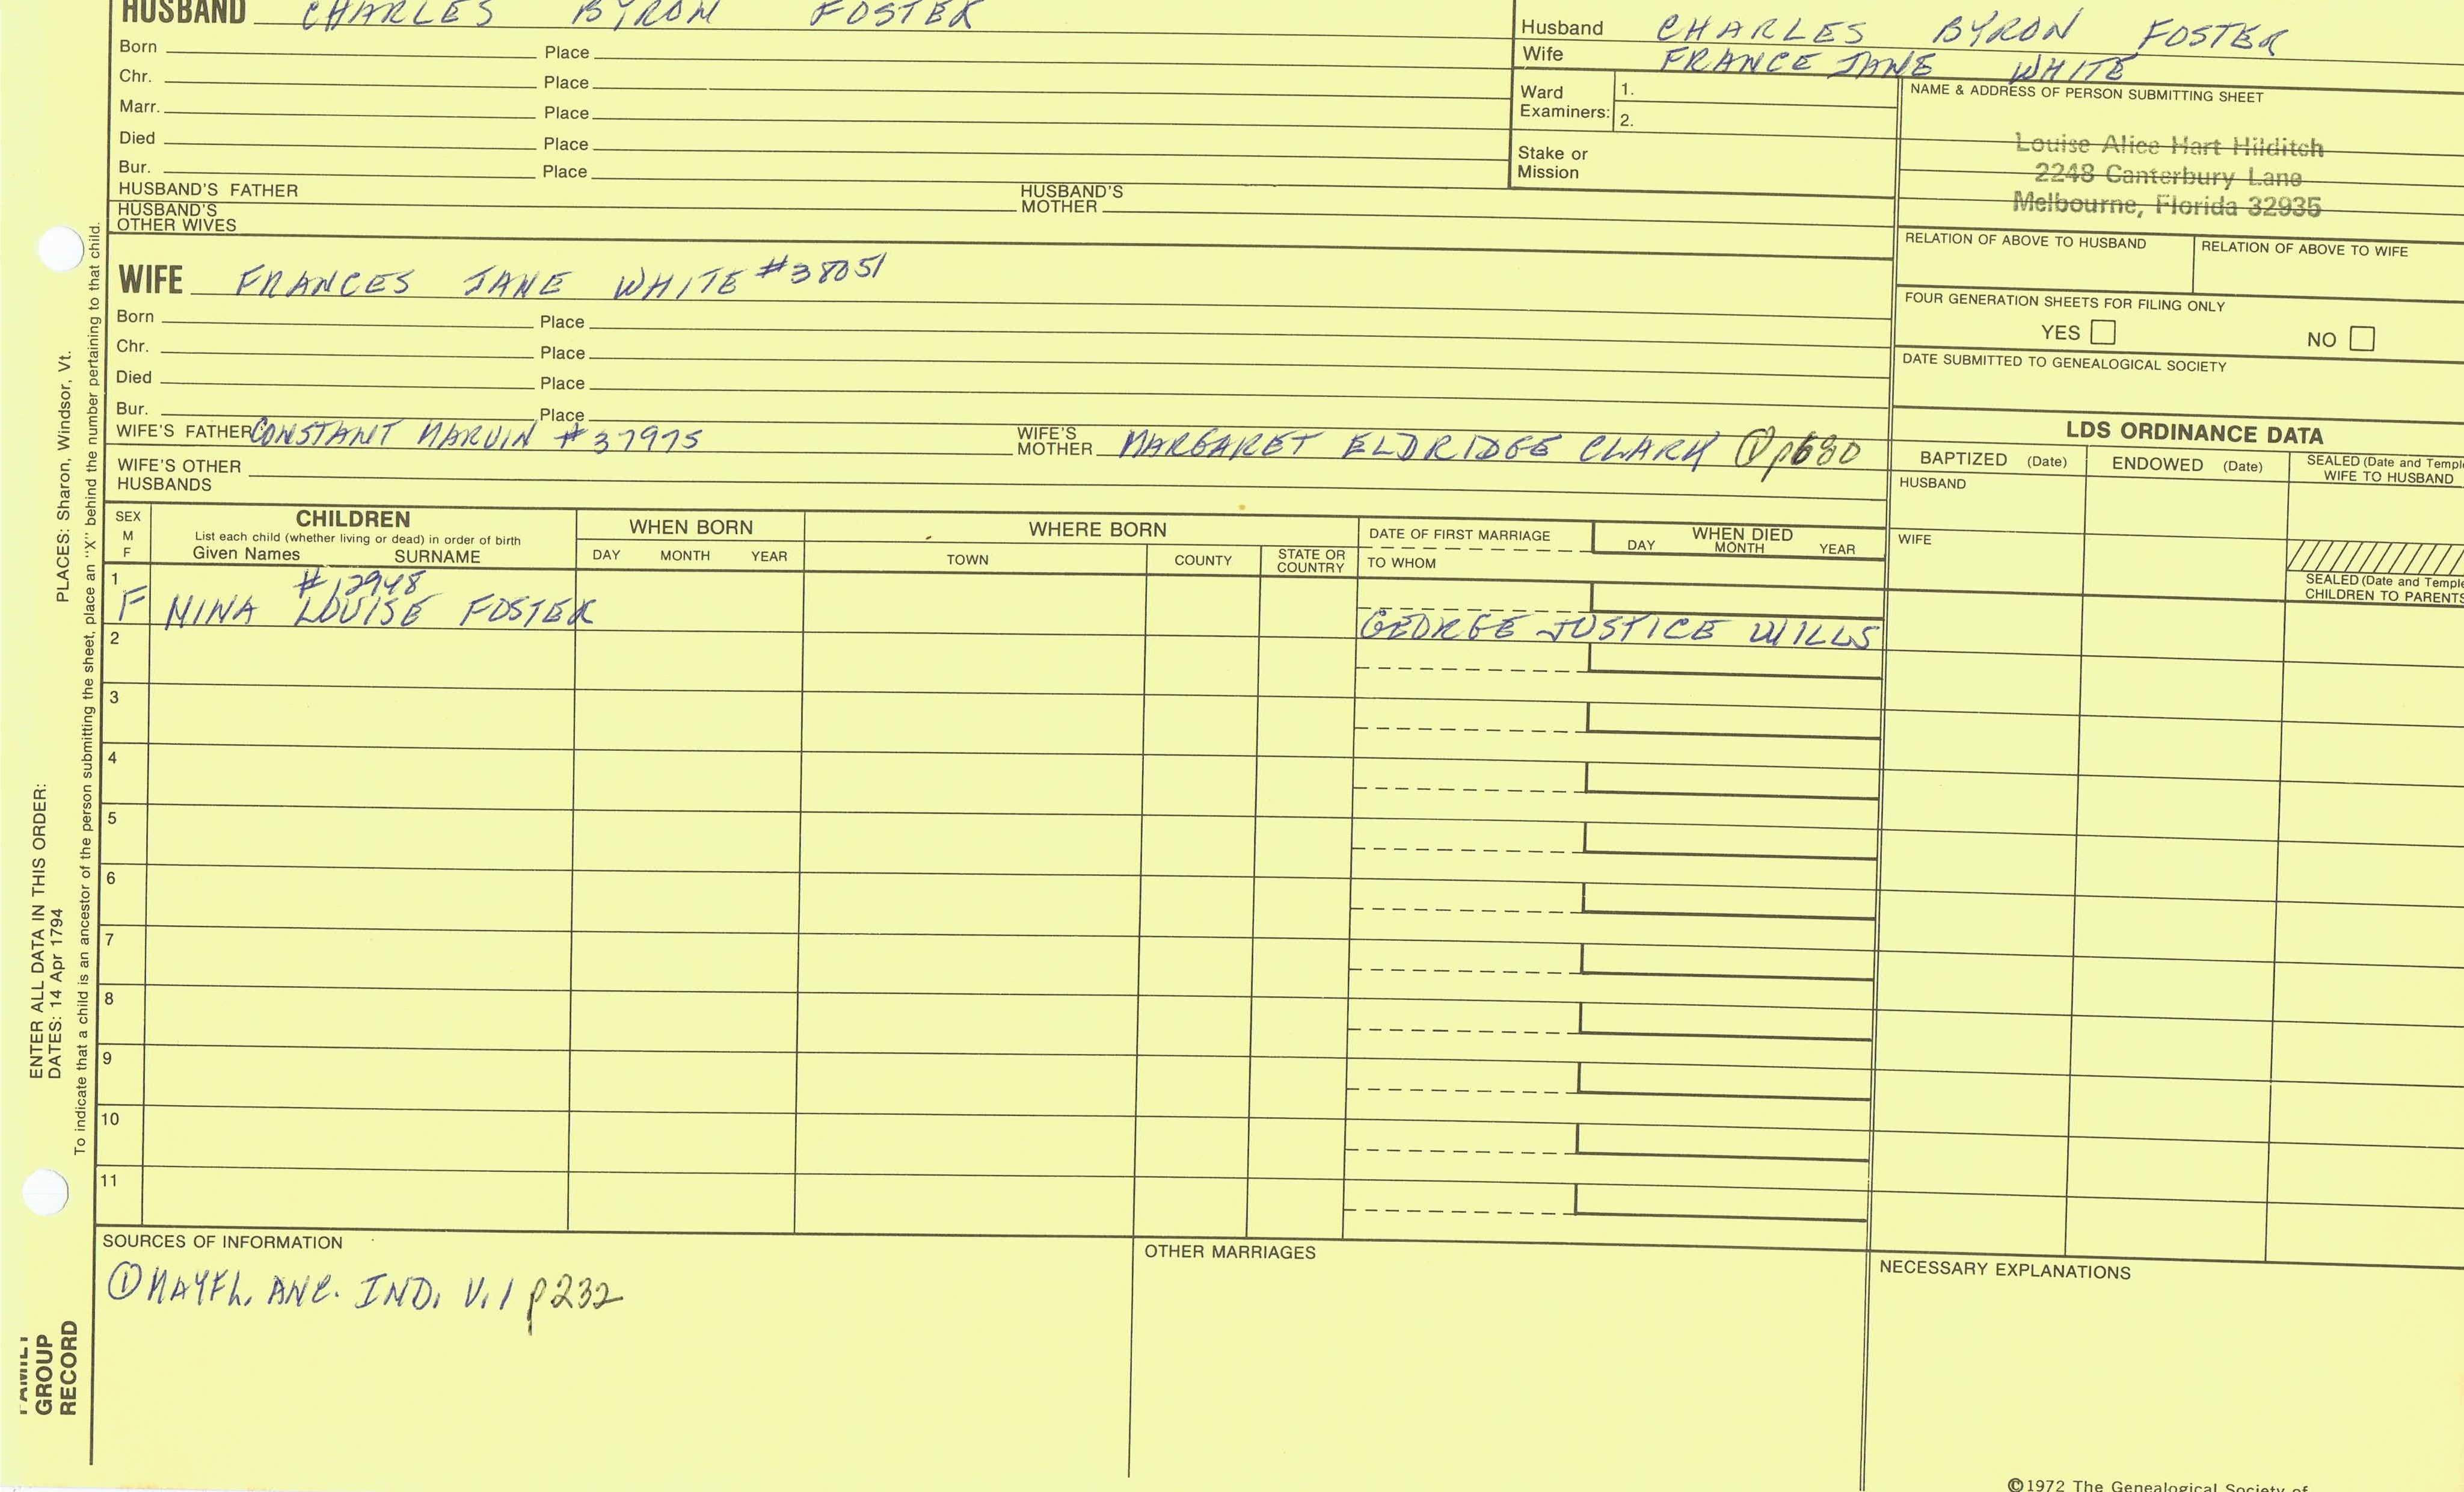 HUSBAND CHARLES BYRON FOSTER
Born Place
Chr. Place
Marr. Place
Died Place
Bur. Place
HUSBAND'S FATHER HUSBAND'S MOTHER
HUSBAND'S OTHER WIVES
Husband CHARLES BYRON FOSTER
Wife FRANCE JANE WHITE
Ward Examiners: 1.
2.
Stake or Mission
NAME & ADDRESS OF PERSON SUBMITTING SHEET
Louise Alice Hart Hilditch
2248 Canterbury Lane
Melbourne, Florida 32935
RELATION OF ABOVE TO HUSBAND RELATION OF ABOVE TO WIFE
FOUR GENERATION SHEETS FOR FILING ONLY
YES NO
DATE SUBMITTED TO GENEALOGICAL SOCIETY
WIFE FRANCES JANE WHITE #38051
Born Place
Chr. Place
Died Place
Bur. Place
WIFE'S FATHER CONSTANT MARVIN #37975 WIFE'S MOTHER MARGARET ELDRIDGE CLARK ① p680
WIFE'S OTHER HUSBANDS
LDS ORDINANCE DATA
BAPTIZED (Date) ENDOWED (Date) SEALED (Date and Temple
WIFE TO HUSBAND
HUSBAND
WIFE
SEALED (Date and Temple
CHILDREN TO PARENTS
SEX M F
CHILDREN
List each child (whether living or dead) in order of birth
Given Names SURNAME
WHEN BORN
DAY MONTH YEAR
WHERE BORN
TOWN COUNTY STATE OR COUNTRY
DATE OF FIRST MARRIAGE
TO WHOM
WHEN DIED
DAY MONTH YEAR
1 #12948
F NINA LOUISE FOSTER GEORGE JUSTICE WILLS
2
3
4
5
6
7
8
9
10
11
SOURCES OF INFORMATION
① MAYFL. ANC. IND. V.1 p232
OTHER MARRIAGES
NECESSARY EXPLANATIONS
©1972 The Genealogical Society of
ENTER ALL DATA IN THIS ORDER:
DATES: 14 Apr 1794 PLACES: Sharon, Windsor, Vt.
To indicate that a child is an ancestor of the person submitting the sheet, place an "X" behind the number pertaining to that child.
FAMILY
GROUP
RECORD